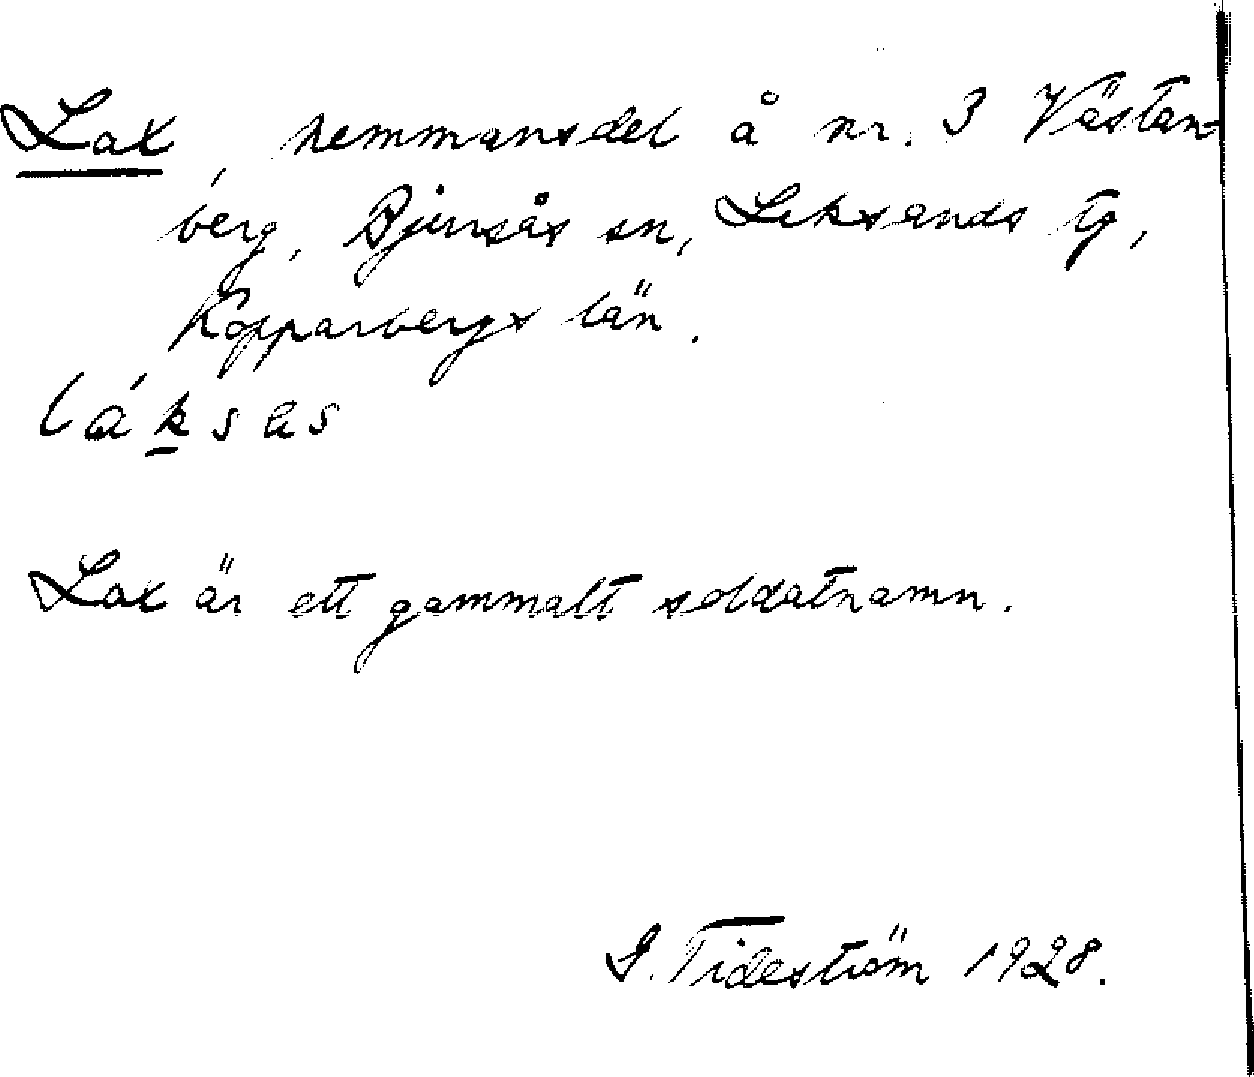 Lax, hemmansdel å nr. 3 Västan-
berg, Bjursås sn, Leksands tg,
Kopparbergs län.
láksas
Lax är ett gammalt soldatnamn.
G. Tideström 1928.